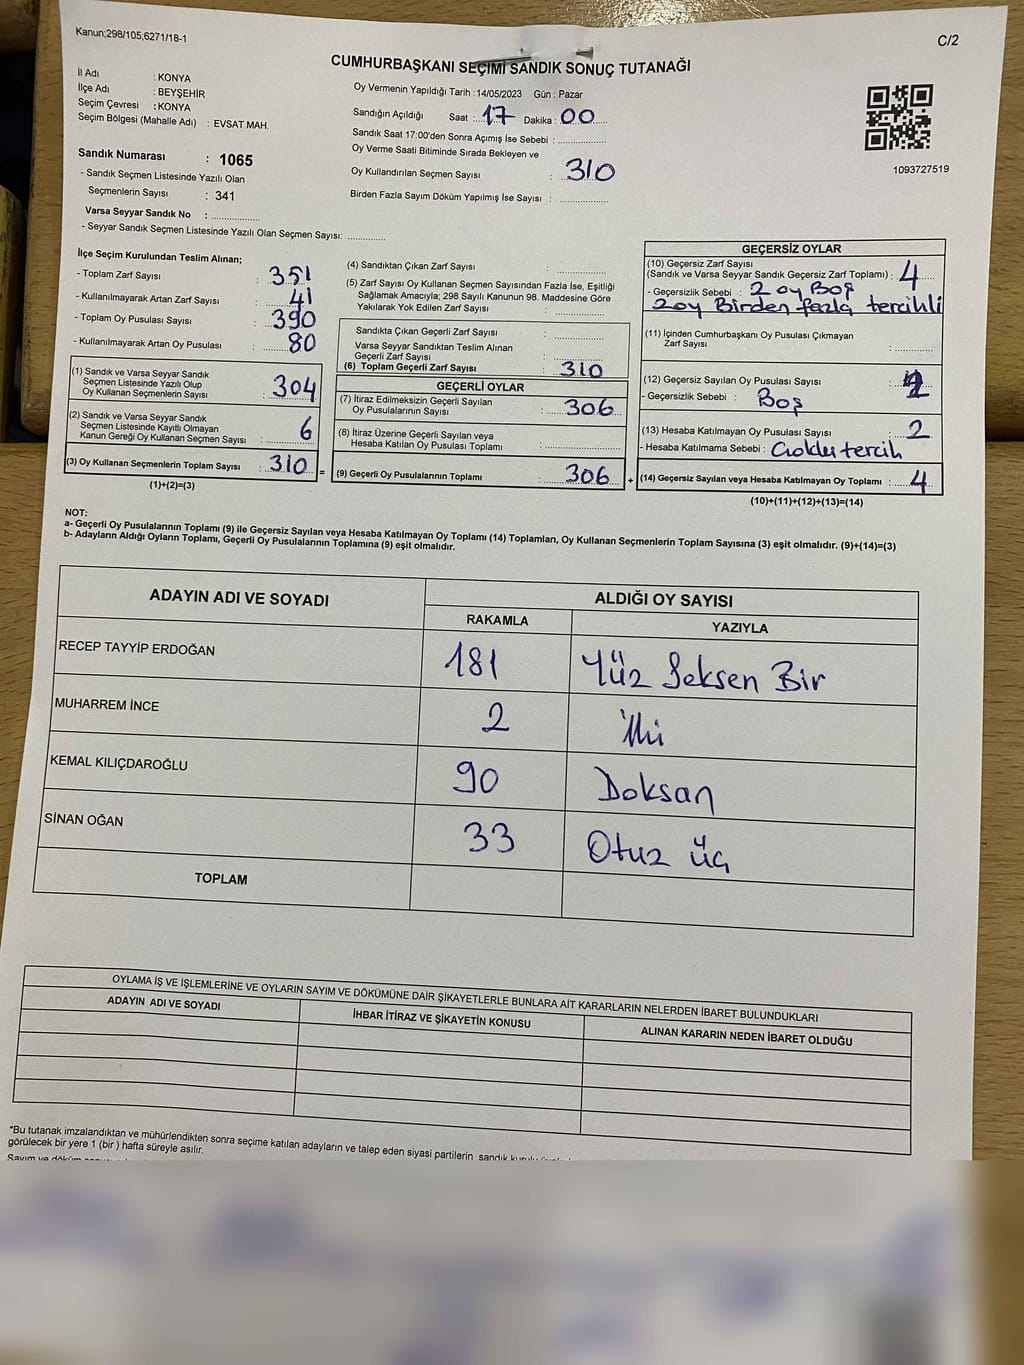 Kanun;298/105;6271/18-1
C/2
CUMHURBAŞKANI SEÇİMİ SANDIK SONUÇ TUTANAĞI
İl Adı : KONYA
İlçe Adı : BEYŞEHİR
Seçim Çevresi : KONYA
Seçim Bölgesi (Mahalle Adı) : EVSAT MAH.
Sandık Numarası : 1065
- Sandık Seçmen Listesinde Yazılı Olan
Seçmenlerin Sayısı : 341
Varsa Seyyar Sandık No : ..................
- Seyyar Sandık Seçmen Listesinde Yazılı Olan Seçmen Sayısı: ..............
Oy Vermenin Yapıldığı Tarih : 14/05/2023 Gün : Pazar
Sandığın Açıldığı Saat : 17 Dakika : 00
Sandık Saat 17:00'den Sonra Açımış İse Sebebi : ..................
Oy Verme Saati Bitiminde Sırada Bekleyen ve
Oy Kullandırılan Seçmen Sayısı : 310
Birden Fazla Sayım Döküm Yapılmış İse Sayısı : ..................
1093727519
İlçe Seçim Kurulundan Teslim Alınan;
- Toplam Zarf Sayısı : 351
- Kullanılmayarak Artan Zarf Sayısı : 41
- Toplam Oy Pusulası Sayısı : 390
- Kullanılmayarak Artan Oy Pusulası : 80
(1) Sandık ve Varsa Seyyar Sandık
Seçmen Listesinde Yazılı Olup
Oy Kullanan Seçmenlerin Sayısı : 304
(2) Sandık ve Varsa Seyyar Sandık
Seçmen Listesinde Kayıtlı Olmayan
Kanun Gereği Oy Kullanan Seçmen Sayısı : 6
(3) Oy Kullanan Seçmenlerin Toplam Sayısı : 310 =
(1)+(2)=(3)
(4) Sandıktan Çıkan Zarf Sayısı : ..................
(5) Zarf Sayısı Oy Kullanan Seçmen Sayısından Fazla İse, Eşitliği
Sağlamak Amacıyla; 298 Sayılı Kanunun 98. Maddesine Göre
Yakılarak Yok Edilen Zarf Sayısı : ..................
Sandıkta Çıkan Geçerli Zarf Sayısı : ..................
Varsa Seyyar Sandıktan Teslim Alınan
Geçerli Zarf Sayısı : ..................
(6) Toplam Geçerli Zarf Sayısı : 310
GEÇERLİ OYLAR
(7) İtiraz Edilmeksizin Geçerli Sayılan
Oy Pusulalarının Sayısı : 306
(8) İtiraz Üzerine Geçerli Sayılan veya
Hesaba Katılan Oy Pusulaları Toplamı : ..................
(9) Geçerli Oy Pusulalarının Toplamı : 306 +
GEÇERSİZ OYLAR
(10) Geçersiz Zarf Sayısı
(Sandık ve Varsa Seyyar Sandık Geçersiz Zarf Toplamı) : 4
- Geçersizlik Sebebi : 2 oy Boş
2 oy Birden fazla tercihli
(11) İçinden Cumhurbaşkanı Oy Pusulası Çıkmayan
Zarf Sayısı : ..................
(12) Geçersiz Sayılan Oy Pusulası Sayısı : 2
- Geçersizlik Sebebi : Boş
(13) Hesaba Katılmayan Oy Pusulası Sayısı : 2
- Hesaba Katılmama Sebebi : Çoklu tercih
(14) Geçersiz Sayılan veya Hesaba Katılmayan Oy Toplamı : 4
(10)+(11)+(12)+(13)=(14)
NOT:
a- Geçerli Oy Pusulalarının Toplamı (9) ile Geçersiz Sayılan veya Hesaba Katılmayan Oy Toplamı (14) Toplamları, Oy Kullanan Seçmenlerin Toplam Sayısına (3) eşit olmalıdır. (9)+(14)=(3)
b- Adayların Aldığı Oyların Toplamı, Geçerli Oy Pusulalarının Toplamına (9) eşit olmalıdır.
ADAYIN ADI VE SOYADI
ALDIĞI OY SAYISI
RAKAMLA YAZIYLA
RECEP TAYYİP ERDOĞAN 181 Yüz Seksen Bir
MUHARREM İNCE 2 İki
KEMAL KILIÇDAROĞLU 90 Doksan
SİNAN OĞAN 33 Otuz üç
TOPLAM
OYLAMA İŞ VE İŞLEMLERİNE VE OYLARIN SAYIM VE DÖKÜMÜNE DAİR ŞİKAYETLERLE BUNLARA AİT KARARLARIN NELERDEN İBARET BULUNDUKLARI
ADAYIN ADI VE SOYADI İHBAR İTİRAZ VE ŞİKAYETİN KONUSU ALINAN KARARIN NEDEN İBARET OLDUĞU
*Bu tutanak imzalandıktan ve mühürlendikten sonra seçime katılan adayların ve talep eden siyasi partilerin sandık
görülecek bir yere 1 (bir ) hafta süreyle asılır.
Sayım ve